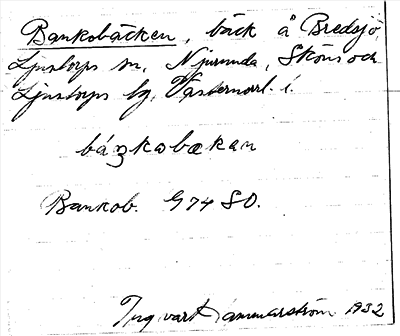 Bankobäcken, bäck å Bredsjö
Ljustorps sn, Njurunda, Sköns och
Ljustorps tg, Västernorrl. l.
báŋkobækan
Bankob. G74 SO.
Ingvart Hammarström 1932